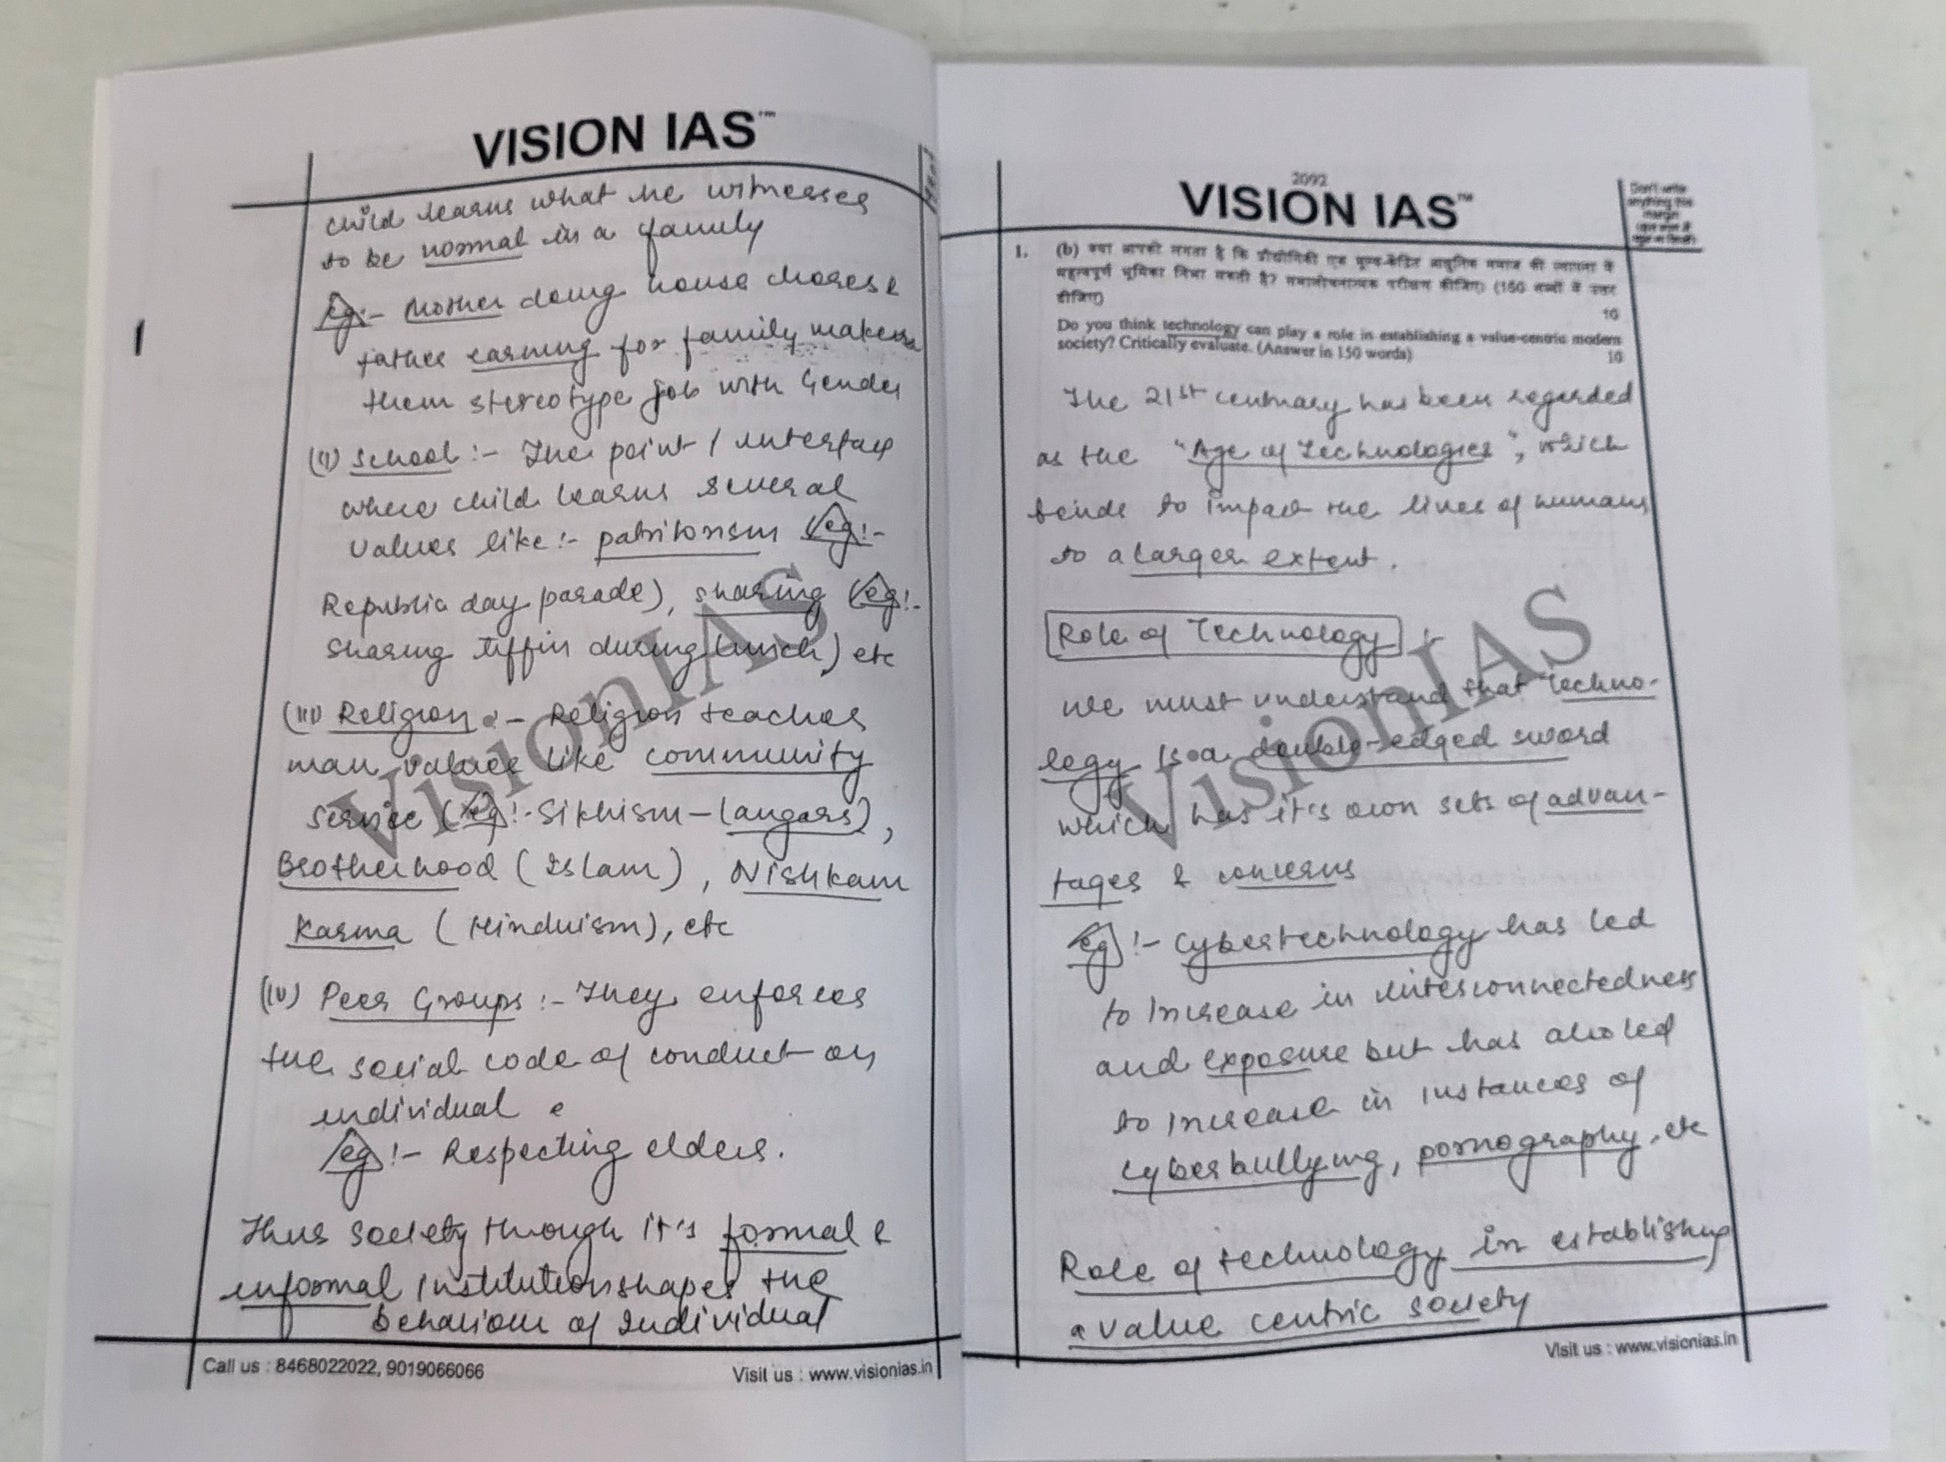 VISION IAS™
child learns what he witnesses
to be normal in a family
Eg:- Mother doing house chores &
father earning for family makes
them stereotype job with Gender
(ii) School :- The point / interface
where child learns several
values like :- patritorism (eg:-
Republic day parade), sharing (eg:-
sharing tiffin during lunch) etc
(iii) Religion :- Religion teaches
man values like community
service (eg:- Sikhism - Langars),
Brotherhood (Islam), Nishkam
Karma (Hinduism), etc
(iv) Peer Groups :- They enforces
the social code of conduct on
individual
eg:- Respecting elders.
Thus society through it's formal &
informal institution shapes the
behaviour of individual
Call us : 8468022022, 9019066066
Visit us : www.visionias.in
VisionIAS
2092
VISION IAS™
Don't write
anything this
margin
1. (b) क्या आपको लगता है कि प्रौद्योगिकी एक मूल्य-केंद्रित आधुनिक समाज की स्थापना में
महत्वपूर्ण भूमिका निभा सकती है? समालोचनात्मक परीक्षण कीजिए। (150 शब्दों में उत्तर
दीजिए)
10
Do you think technology can play a role in establishing a value-centric modern
society? Critically evaluate. (Answer in 150 words) 10
The 21st centuary has been regarded
as the "Age of Technologies", which
tends to impact the lives of humans
to a larger extent.
Role of Technology :-
We must understand that Techno-
logy is a double-edged sword
which has it's own sets of advan-
tages & concerns
eg :- Cybertechnology has led
to increase in interconnectedness
and exposure but has also led
to increase in instances of
cyberbullying, pornography, etc
Role of technology in establishing
a value centric society
Visit us : www.visionias.in
VisionIAS